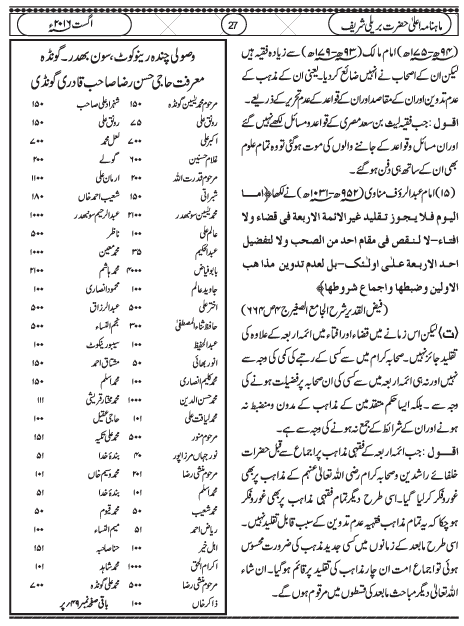 ماہنامہ اعلیٰ حضرت بریلی شریف
27
اگست ۲۰۱۶ء
(۹۴ھ-۱۷۵ھ) امام مالک (۹۳ھ-۱۷۹ھ) سے زیادہ فقیہ ہیں
لیکن ان کے اصحاب نے انہیں ضائع کردیا۔ یعنی ان کے مذہب کے
عدم تدوین اور ان کے مقاصد اور ان کے قواعد کے عدم تحریر کے ذریعے۔
اقول: جب فقیہ لیث بن سعد مصری کے قواعد و مسائل لکھے نہیں گئے
اور ان مسائل و قواعد کے جاننے والوں کی موت ہوگئی تو وہ تمام علوم
بھی ان کے ساتھ ہی دفن ہوگئے۔
(۱۵) امام عبدالرؤف مناوی (۹۵۲ھ-۱۰۳۱ھ) نے لکھا ﴿اما
الیوم فلا یجوز تقلید غیر الائمۃ الاربعۃ فی قضاء ولا
افتاء-لا لنقص فی مقام احد من الصحب ولا لتفضیل
احد الاربعۃ علی اولئک-بل لعدم تدوین مذاھب
الاولین وضبطھا واجماع شروطھا﴾
(فیض القدیر شرح الجامع الصغیر ج۴ ص۶۶۴)
(ت) لیکن اس زمانے میں قضاء اور افتاء میں ائمہ اربعہ کے علاوہ کی
تقلید جائز نہیں۔ صحابہ کرام میں سے کسی کے رتبے کی کمی کی وجہ سے
نہیں اور نہ ہی ائمہ اربعہ میں سے کسی کی ان صحابہ پر فضیلت ہونے کی
وجہ سے۔ بلکہ ایسا حکم متقدمین کے مذاہب کے مدون و منضبط نہ
ہونے اور ان کے شرائط کے جمع نہ ہونے کی وجہ سے ہے۔
اقول: جب ائمہ اربعہ کے فقہی مذاہب پر اجماع سے قبل حضرات
خلفائے راشدین و صحابہ کرام رضی اللہ تعالیٰ عنہم کے مذاہب پر بھی
غور و فکر کرلیا گیا۔ اسی طرح دیگر تمام فقہی مذاہب پر بھی غور و فکر
ہوچکا کہ یہ تمام مذاہب فقہیہ عدم تدوین کے سبب قابل تقلید نہیں۔
اسی طرح مابعد کے زمانوں میں کسی جدید مذہب کی ضرورت محسوس
ہوئی تو اجماع امت ان چار مذاہب کی تقلید پر قائم ہوگیا۔ ان شاء
اللہ تعالیٰ دیگر مباحث مابعد کی قسطوں میں مرقوم ہوں گے۔
وصولی چندہ رینوکوٹ، سون بھدر۔ گونڈہ
معرفت حاجی حسن رضا صاحب قادری گونڈی
مرحوم محمد یٰسین گونڈہ ۱۵۰ شہزاد علی صاحب ۱۵۰
رونق علی ۷۵ رونق علی ۱۵۰
اکبر علی ۷۰۰ لعل محمد ۷۰۰
غلام حسنین ۶۰۰ گولے ۲۰۰
مرحوم قدرت اللہ ۲۰۰ ارمان علی ۱۱۰۰
شبراتی ۱۵۰ شعیب احمد خاں ۱۸۰
محمد یٰسین سونبھدر ۲۱۰۰ عبدالرحیم سونبھدر ۱۰۰۰
عالم علی ۱۰۰ ناظر ۵۰۰
عبدالحکیم ۳۵ محمد معین ۱۰۰۰
بابو فیاض ۳۰۰۰ محمد ہاشم ۲۱۰۰
جاوید عالم ۱۰۰ محمود انصاری ۱۰۰
اختر علی ۵۰۰ عبدالرزاق ۵۰۰
حافظ ثناء المصطفیٰ ۳۰۰ نجم النساء ۵۰۰
عبدالحفیظ ۱۰۰ سیپور پیکوٹ ۱۰۰
انور بھائی ۵۰ مشتاق احمد ۱۵۰
محمد کلیم انصاری ۱۰۰ محمد اسلم ۱۵۰
محمد حسن الدین ۱۰۰۰ محمد مختار قریشی ۱۱۱
محمد لیاقت علی ۱۰۱ حاجی عقیل ۱۰۰
مرحوم منور ۵۰۰ محمد علی تکیہ ۱۵۱
نور جہاں مرزا پور ۴۰ بندۂ خدا ۵۱
مرحوم منشی رضا ۲۰۱ محمد وسیم خاں ۱۰۱
محمد اسلم ۱۰۱ بندۂ خدا ۵۱
محمد شعیب ۵۰ محمد قیوم ۵۰
ریاض احمد ۵۱ میم النساء ۱۰۰
اہل خیر ۱۰۰ حنا صاحبہ ۱۵۱
اکرام الحق ۱۰۰۰ محمد شاہد ۱۰۱
مرحوم منشی رضا ۵۰۰ محمد علی گونڈہ ۷۰۰
ذاکر خاں ۱۰۰ باقی صفحہ نمبر ۴۹ پر